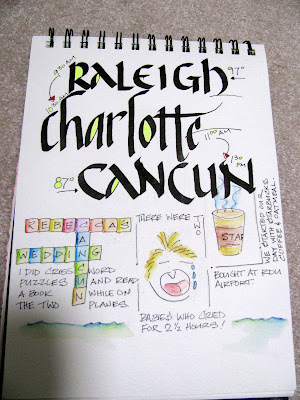 9:30 AM
RALEIGH
97°
10:30 AM
charlotte
11:00 AM
1:30 PM
87°
CANCUN
REBECCAS
CANCUN
WEDDING
I DID CROSS WORD
PUZZLES AND READ
A BOOK WHILE ON
THE TWO PLANES.
THERE WERE
TWO
BABIES WHO CRIED
FOR 2½ HOURS!
STAR
BOUGHT AT RDU
AIRPORT.
WE STARTED OUR
DAY WITH STARBUCKS
COFFEE & OATMEAL.